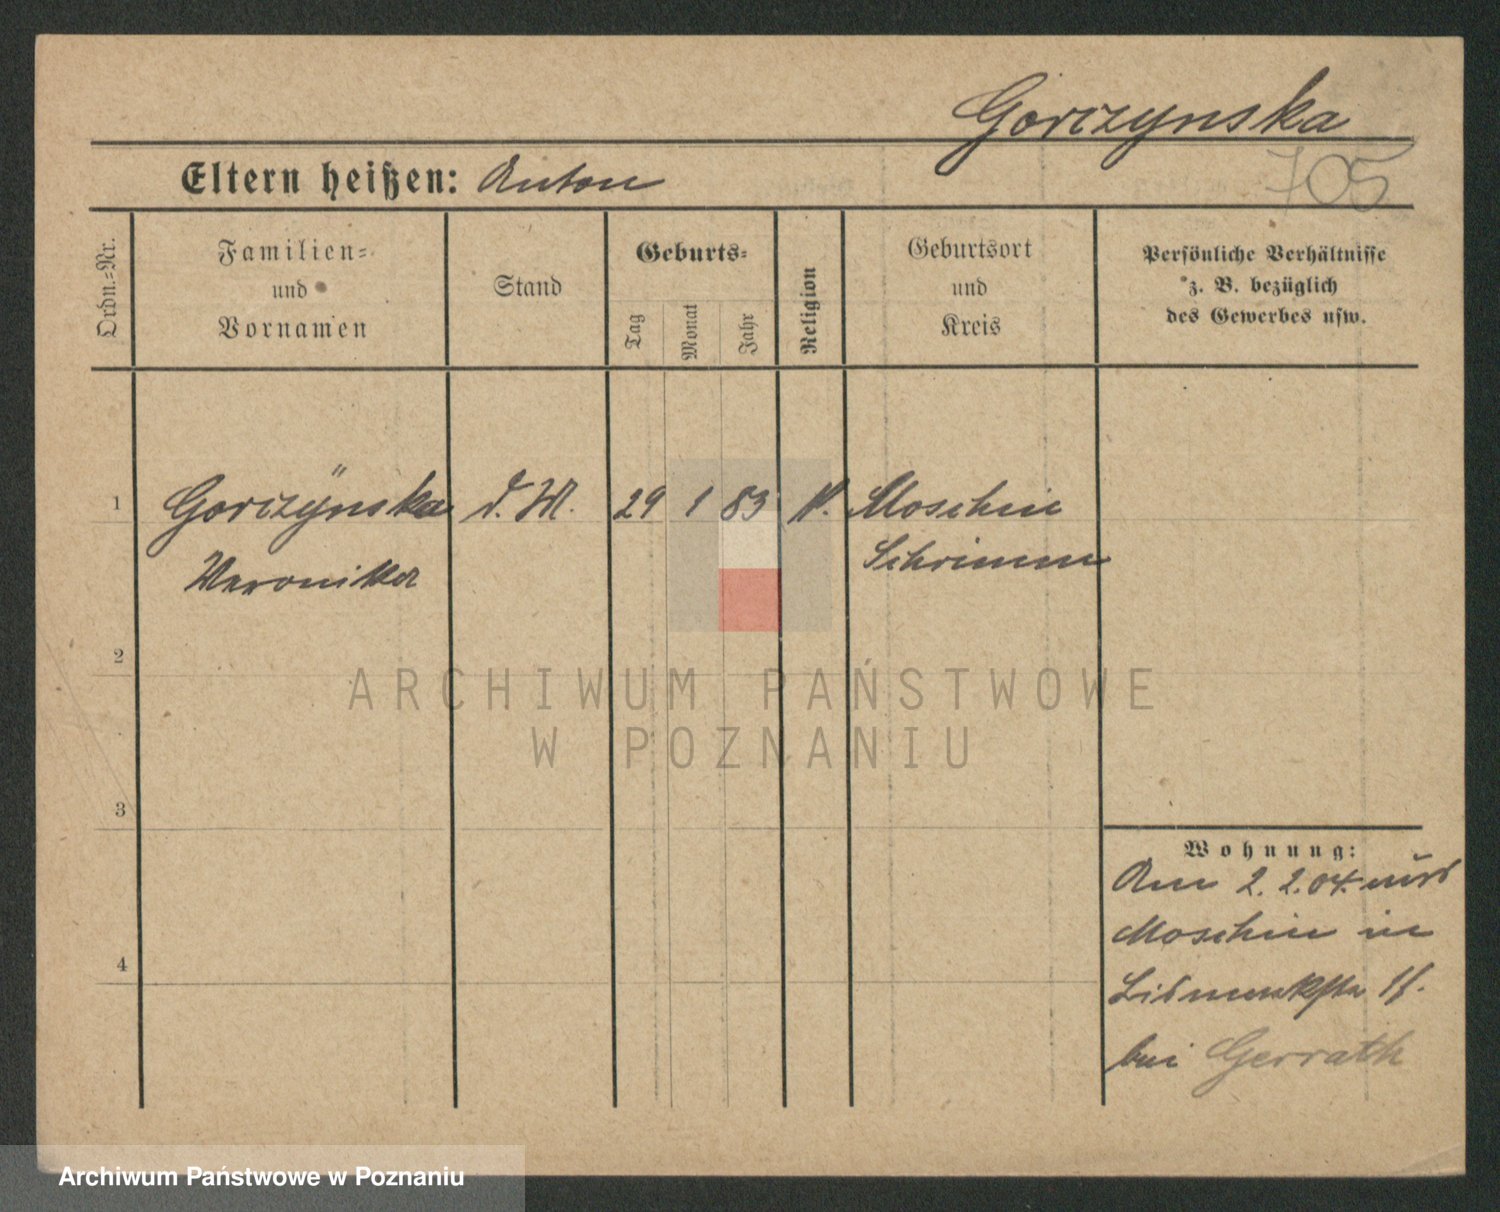 Gorczynska
705
Eltern heißen: Anton
Ordn.-Nr.
Familien-
und
Vornamen
Stand
Geburts-
Tag
Monat
Jahr
Religion
Geburtsort
und
Kreis
Persönliche Verhältnisse
z. B. bezüglich
des Gewerbes usw.
1 Gorczÿnska d. M. 29 1 83 k. Moschin
Weronika Schrimm
2
ARCHIWUM PAŃSTWOWE
W POZNANIU
3
Wohnung:
Am 2. 2. 04. aus
Moschin in
Bismarckstr
bei Gerrath
4
Archiwum Państwowe w Poznaniu